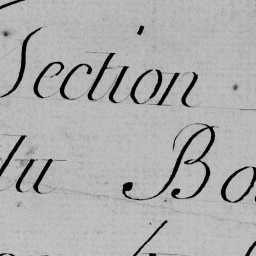 Section
du Bo